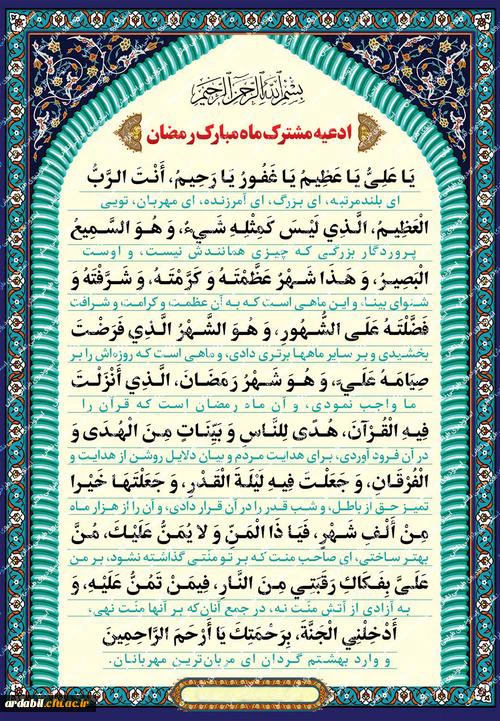 بِسْمِ اللَّهِ الرَّحْمَنِ الرَّحِيمِ
ادعیه مشترک ماه مبارک رمضان
يَا عَلِيُّ يَا عَظِيمُ يَا غَفُورُ يَا رَحِيمُ، أَنْتَ الرَّبُّ
ای بلندمرتبه، ای بزرگ، ای آمرزنده، ای مهربان، تویی
الْعَظِيمُ، الَّذِي لَيْسَ كَمِثْلِهِ شَيْءٌ، وَ هُوَ السَّمِيعُ
پروردگار بزرگی که چیزی همانندش نیست، و اوست
الْبَصِيرُ، وَ هَذَا شَهْرٌ عَظَّمْتَهُ وَ كَرَّمْتَهُ، وَ شَرَّفْتَهُ وَ
شنوای بینا، و این ماهی است که به آن عظمت و کرامت و شرافت
فَضَّلْتَهُ عَلَى الشُّهُورِ، وَ هُوَ الشَّهْرُ الَّذِي فَرَضْتَ
بخشیدی و بر سایر ماهها برتری دادی، و ماهی است که روزه‌اش را بر
صِيَامَهُ عَلَيَّ، وَ هُوَ شَهْرُ رَمَضَانَ، الَّذِي أَنْزَلْتَ
ما واجب نمودی، و آن ماه رمضان است که قرآن را
فِيهِ الْقُرْآنَ، هُدًى لِلنَّاسِ وَ بَيِّنَاتٍ مِنَ الْهُدَى وَ
در آن فرود آوردی، برای هدایت مردم و بیان دلایل روشن از هدایت و
الْفُرْقَانِ، وَ جَعَلْتَ فِيهِ لَيْلَةَ الْقَدْرِ، وَ جَعَلْتَهَا خَيْرا
تمیز حق از باطل، و شب قدر را در آن قرار دادی، و آن را از هزار ماه
مِنْ أَلْفِ شَهْرٍ، فَيَا ذَا الْمَنِّ وَ لا يُمَنُّ عَلَيْكَ، مُنَّ
بهتر ساختی، ای صاحب منت که بر تو منّتی گذاشته نشود، بر من
عَلَيَّ بِفَكَاكِ رَقَبَتِي مِنَ النَّارِ، فِيمَنْ تَمُنُّ عَلَيْهِ، وَ
به آزادی از آتش منّت نه، در جمع آنان‌که بر آنها منّت نهی،
أَدْخِلْنِي الْجَنَّةَ، بِرَحْمَتِكَ يَا أَرْحَمَ الرَّاحِمِينَ
و وارد بهشتم گردان ای مهربان‌ترین مهربانان.
ardabil.chi.ac.ir